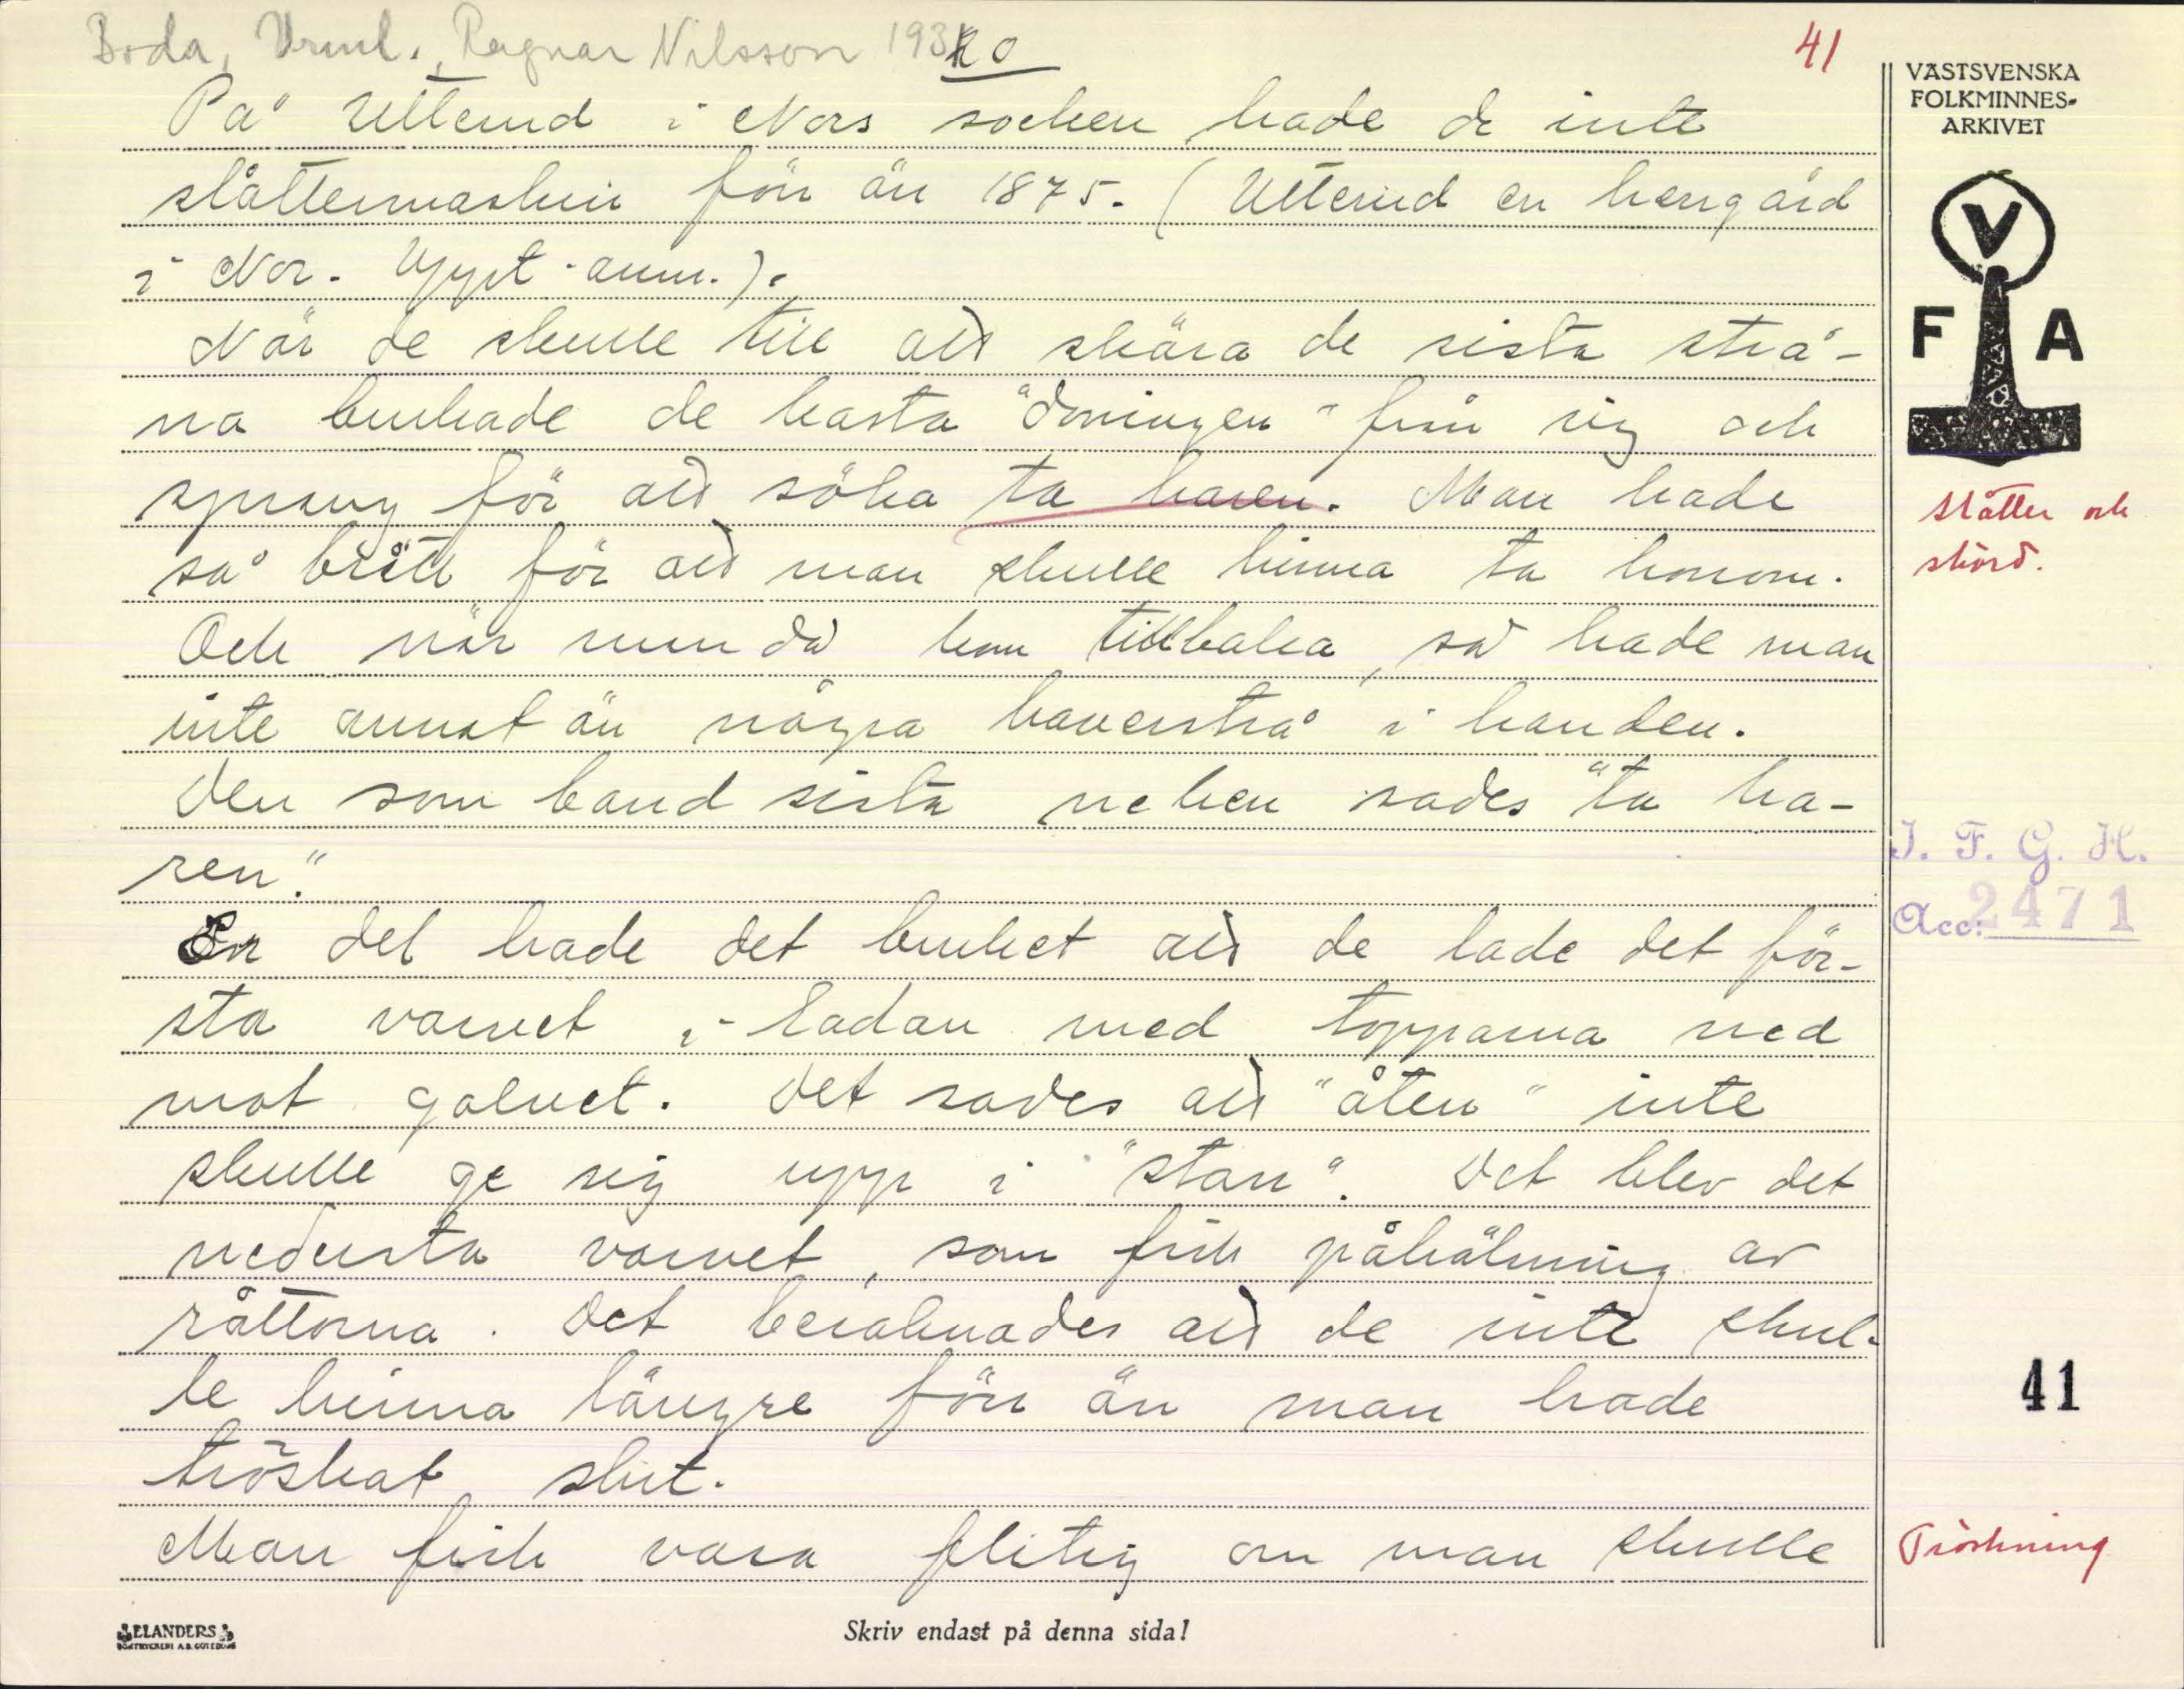 Boda, Vrml., Ragnar Nilsson 193
41
På Utterud i Nors socken hade de inte
slåttermaskin förr än 1875. (Utterud en herrgård
i Nor. Uppt. anm.).
När de skulle till att skära de sista strå-
na brukade de kasta "doningen" från sig och
sprang för att söka ta haren. Man hade
så brått för att man skulle hinna ta honom.
Och när man då kom tillbaka, så hade man
inte annat än några haverstrå i handen.
Den som band sista neken sades "ta ha-
ren."
En del hade det bruket att de lade det för-
sta varvet i ladan med topparna ned
mot golvet. Det sades att "åten" inte
skulle ge sig upp i "stan". Det blev det
nedersta varvet, som fick påhälsning av
råttorna. Det beräknades att de inte skul-
le hinna längre förr än man hade
tröskat slut.
Man fick vara flitig om man skulle
VÄSTSVENSKA
FOLKMINNES-
ARKIVET
V
F A
Slåtter och
skörd.
I. F. G. H.
Acc: 2471
41
Tröskning
ELANDERS
BOKTRYCKERI A.B. GÖTEBORG
Skriv endast på denna sida!